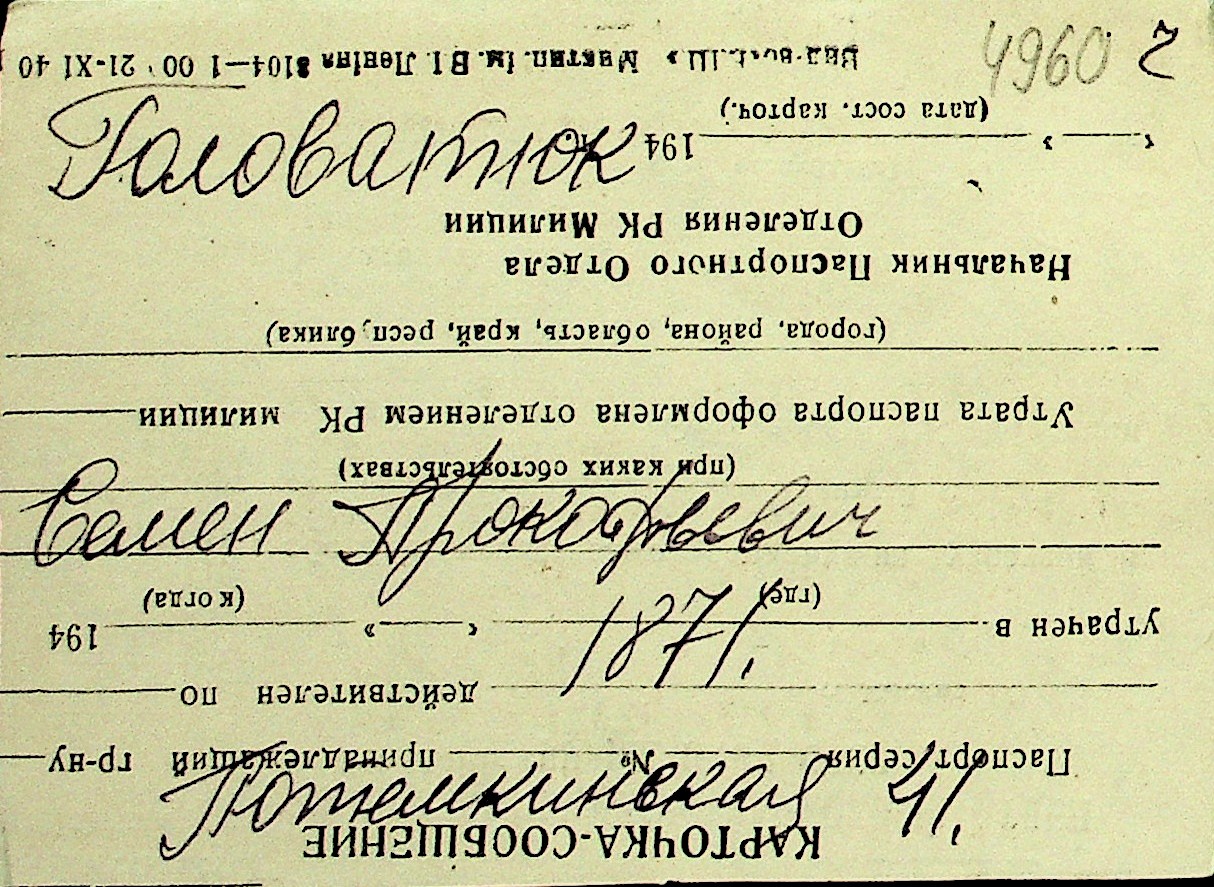 4960 2
Головатюк
Семен Прокофьевич
1871.
Потемкинская 41.
КАРТОЧКА-СООБЩЕНИЕ
Паспорт, серия № принадлежащий гр-ну
действителен по
утрачен в « » 194
(где) (когда)
(при каких обстоятельствах)
Утрата паспорта оформлена отделением РК милиции
(города, района, область, край, республика)
Начальник Паспортного Отдела
Отделения РК Милиции
« » 194
(дата сост. карточ.)
Миктип. ім. В І. Леніна 3104—1 00 21-XI 40